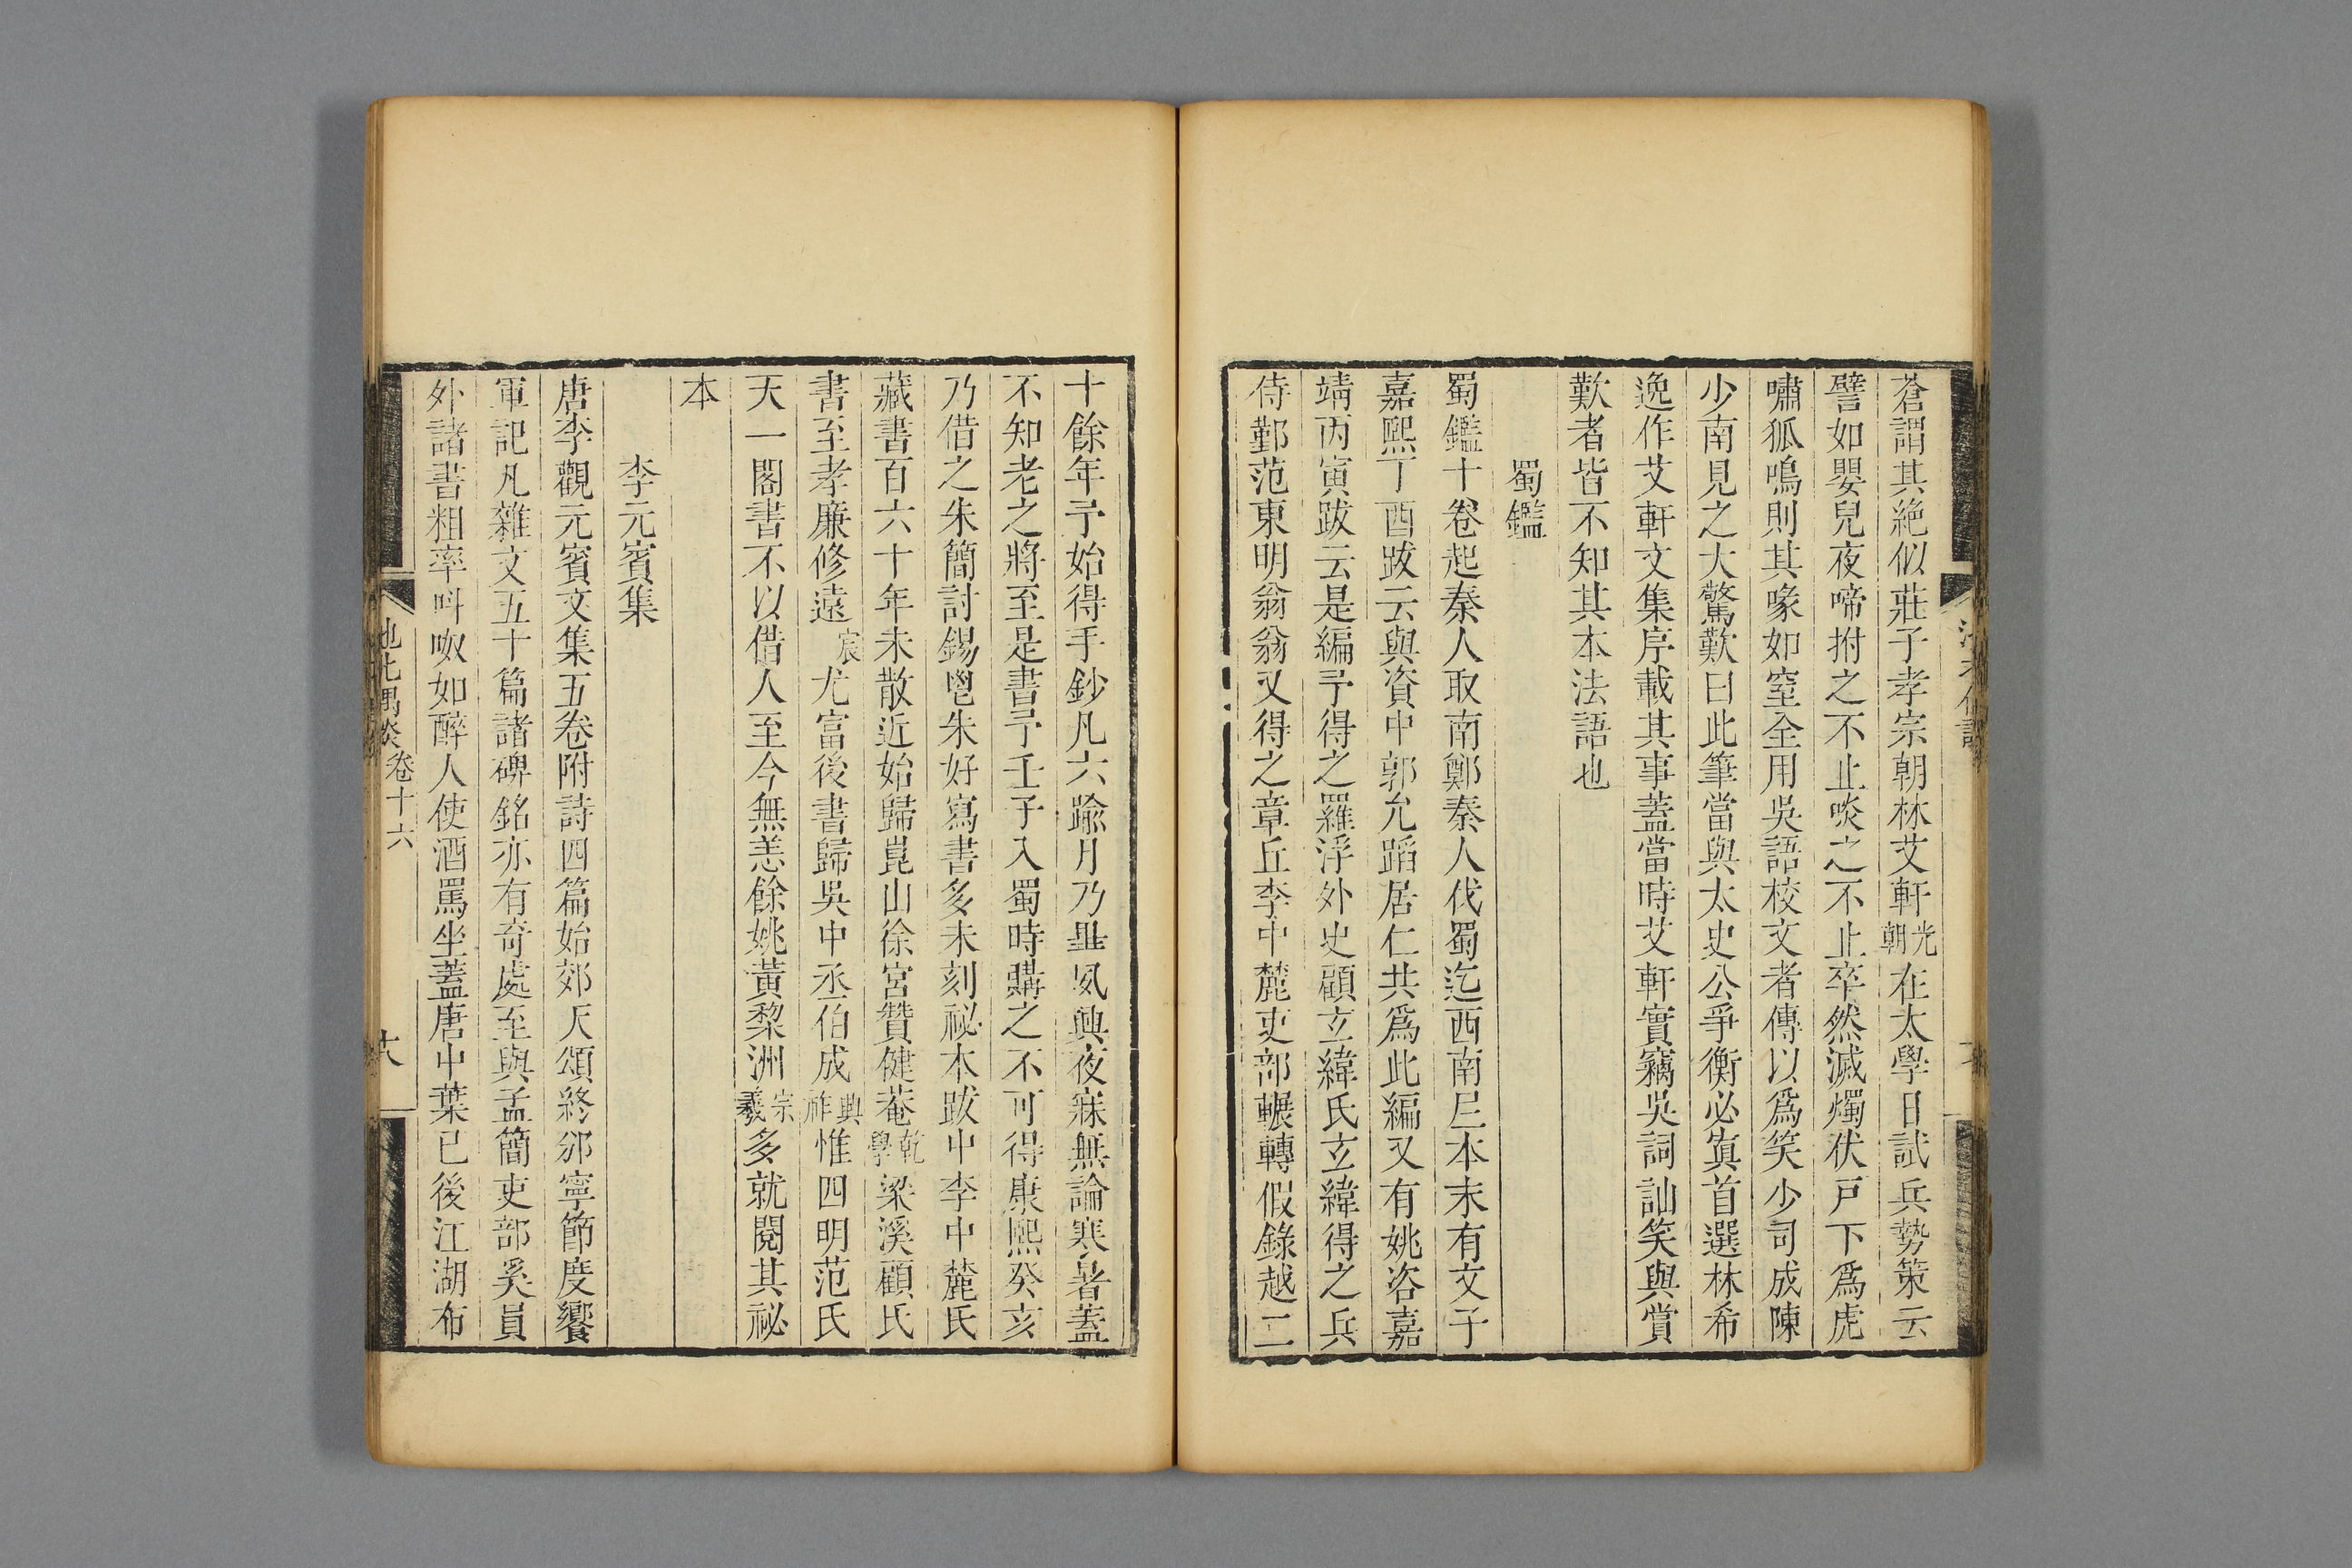 蒼謂其絶似莊子孝宗朝林艾軒光朝在太學日試兵勢策云
譬如嬰兒夜啼拊之不止啖之不止卒然滅燭伏戸下爲虎
嘯狐鳴則其喙如窒全用吳語校文者傳以爲笑少司成陳
少南見之大驚歎曰此筆當與太史公爭衡必寘首選林希
逸作艾軒文集序載其事蓋當時艾軒實竊吳詞訕笑與賞
歎者皆不知其本法語也
蜀鑑
蜀鑑十卷起秦人取南鄭秦人伐蜀迄西南夷本末有文子
嘉熙丁酉跋云與資中郭允蹈居仁共爲此編又有姚咨嘉
靖丙寅跋云是編予得之羅浮外史顧玄緯氏玄緯得之兵
侍鄞范東明翁翁又得之章丘李中麓吏部輾轉假錄越二
十餘年予始得手鈔凡六踰月乃畢夙興夜寐無論寒暑蓋
不知老之將至是書予壬子入蜀時購之不可得康熙癸亥
乃借之朱簡討錫鬯朱好寫書多未刻祕本跋中李中麓氏
藏書百六十年未散近始歸崑山徐宮贊健菴乾學梁溪顧氏
書至孝廉修遠宸尤富後書歸吳中丞伯成興祚惟四明范氏
天一閣書不以借人至今無恙餘姚黃黎洲宗羲多就閱其祕
本
李元賓集
唐李觀元賓文集五卷附詩四篇始郊天頌終邠寧節度饗
軍記凡雜文五十篇諸碑銘亦有奇處至與孟簡吏部奚員
外諸書粗率叫呶如醉人使酒罵坐蓋唐中葉已後江湖布
池北偶談 卷十六 十八